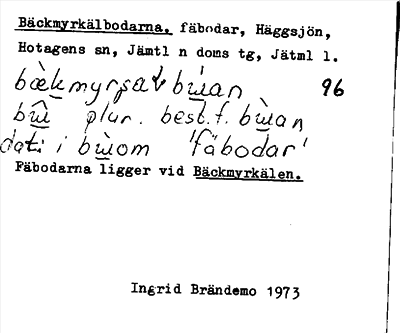 Bäckmyrkälbodarna, fäbodar, Häggsjön,
Hotagens sn, Jämtl n doms tg, Jätml l.
96
plur. best. f.
dat. i 'fäbodar'
Fäbodarna ligger vid Bäckmyrkälen.
Ingrid Brändemo 1973